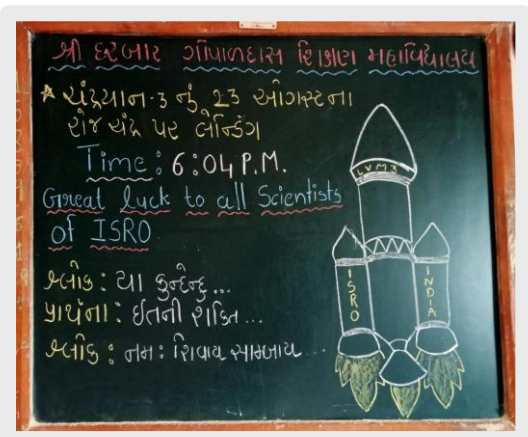 શ્રી દરબાર ગોપાળદાસ શિક્ષણ મહાવિદ્યાલય
* ચંદ્રયાન-3 નું 23 ઓગસ્ટના
રોજ ચંદ્ર પર લેન્ડિંગ
Time : 6:04 P.M.
Great luck to all Scientists
of ISRO
શ્લોક : યા કુન્દેન્દુ...
પ્રાર્થના : ઈતની શક્તિ...
શ્લોક : નમઃ શિવાય સામ્બાય...
LVM3
ISRO
INDIA